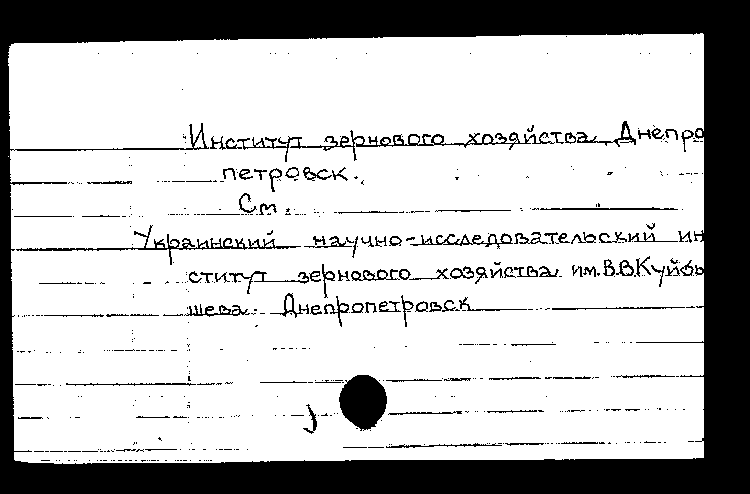 Институт зернового хозяйства, Днепро
петровск.
См.
Украинский научно-исследовательский ин
ститут зернового хозяйства им. В.В. Куйбы
шева. Днепропетровск